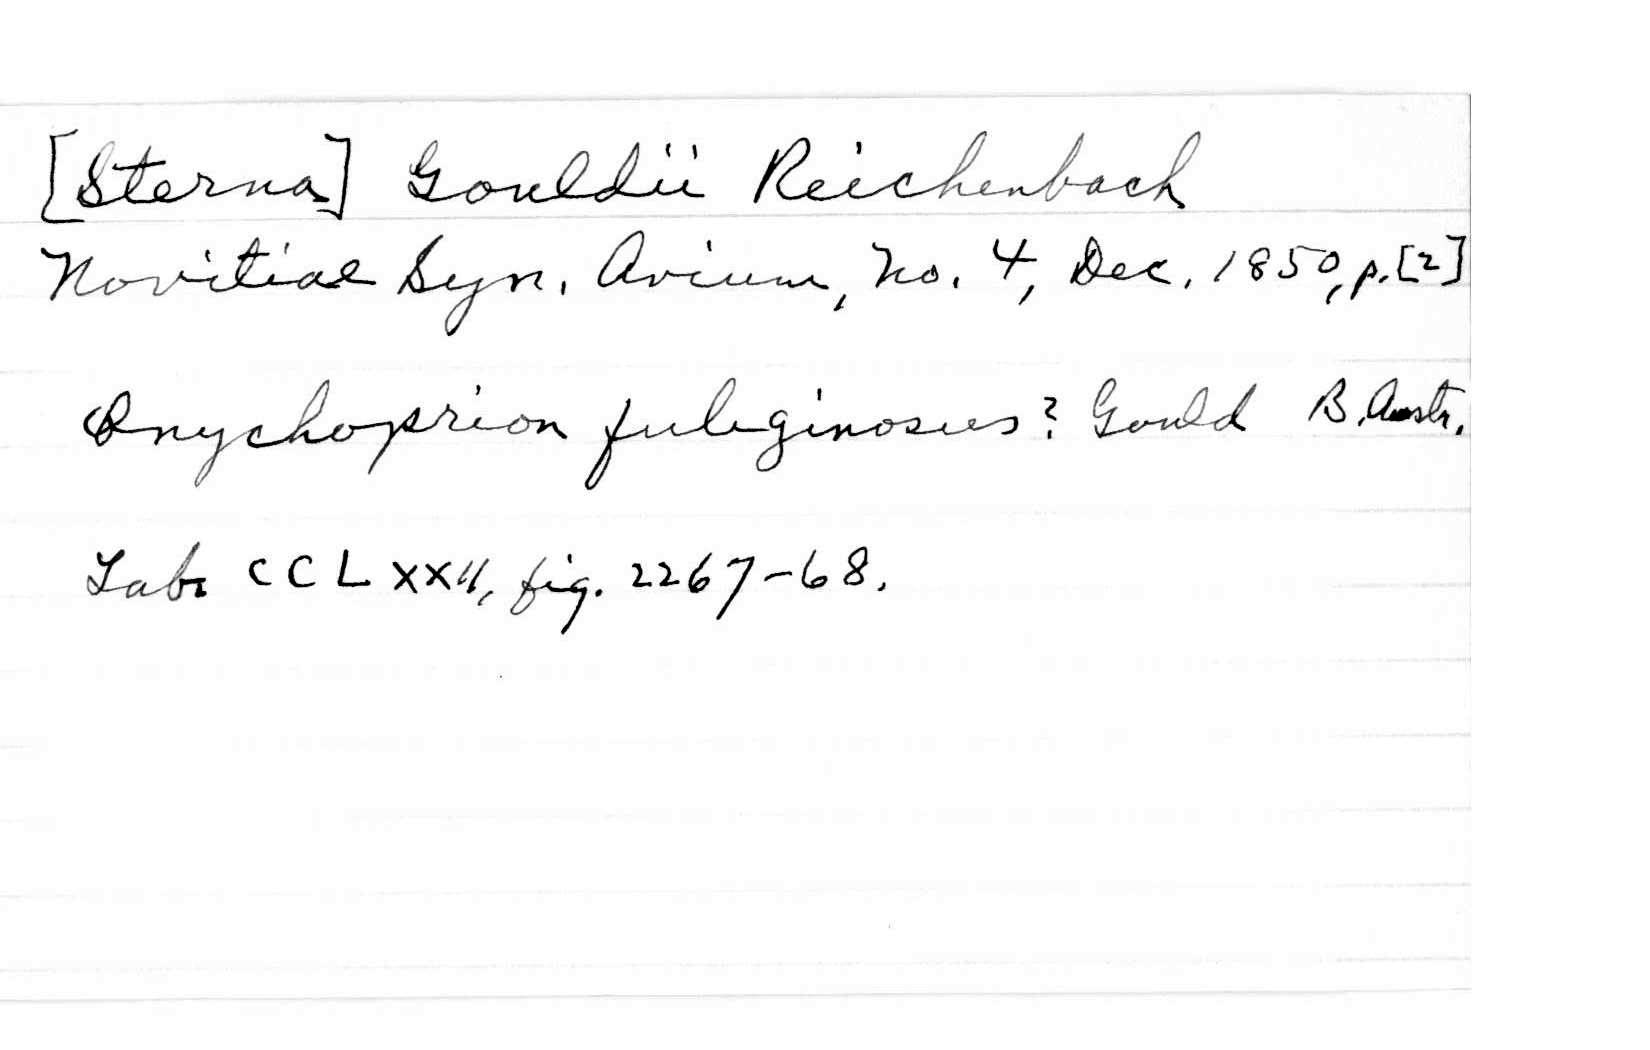 [Sterna] Gouldii Reichenbach
Novitiae Syn. Avium, No. 4, Dec. 1850, p.[2]
Onychoprion fuliginosus? Gould B. Austr.
Tab. CCLXXII, fig. 2267-68.